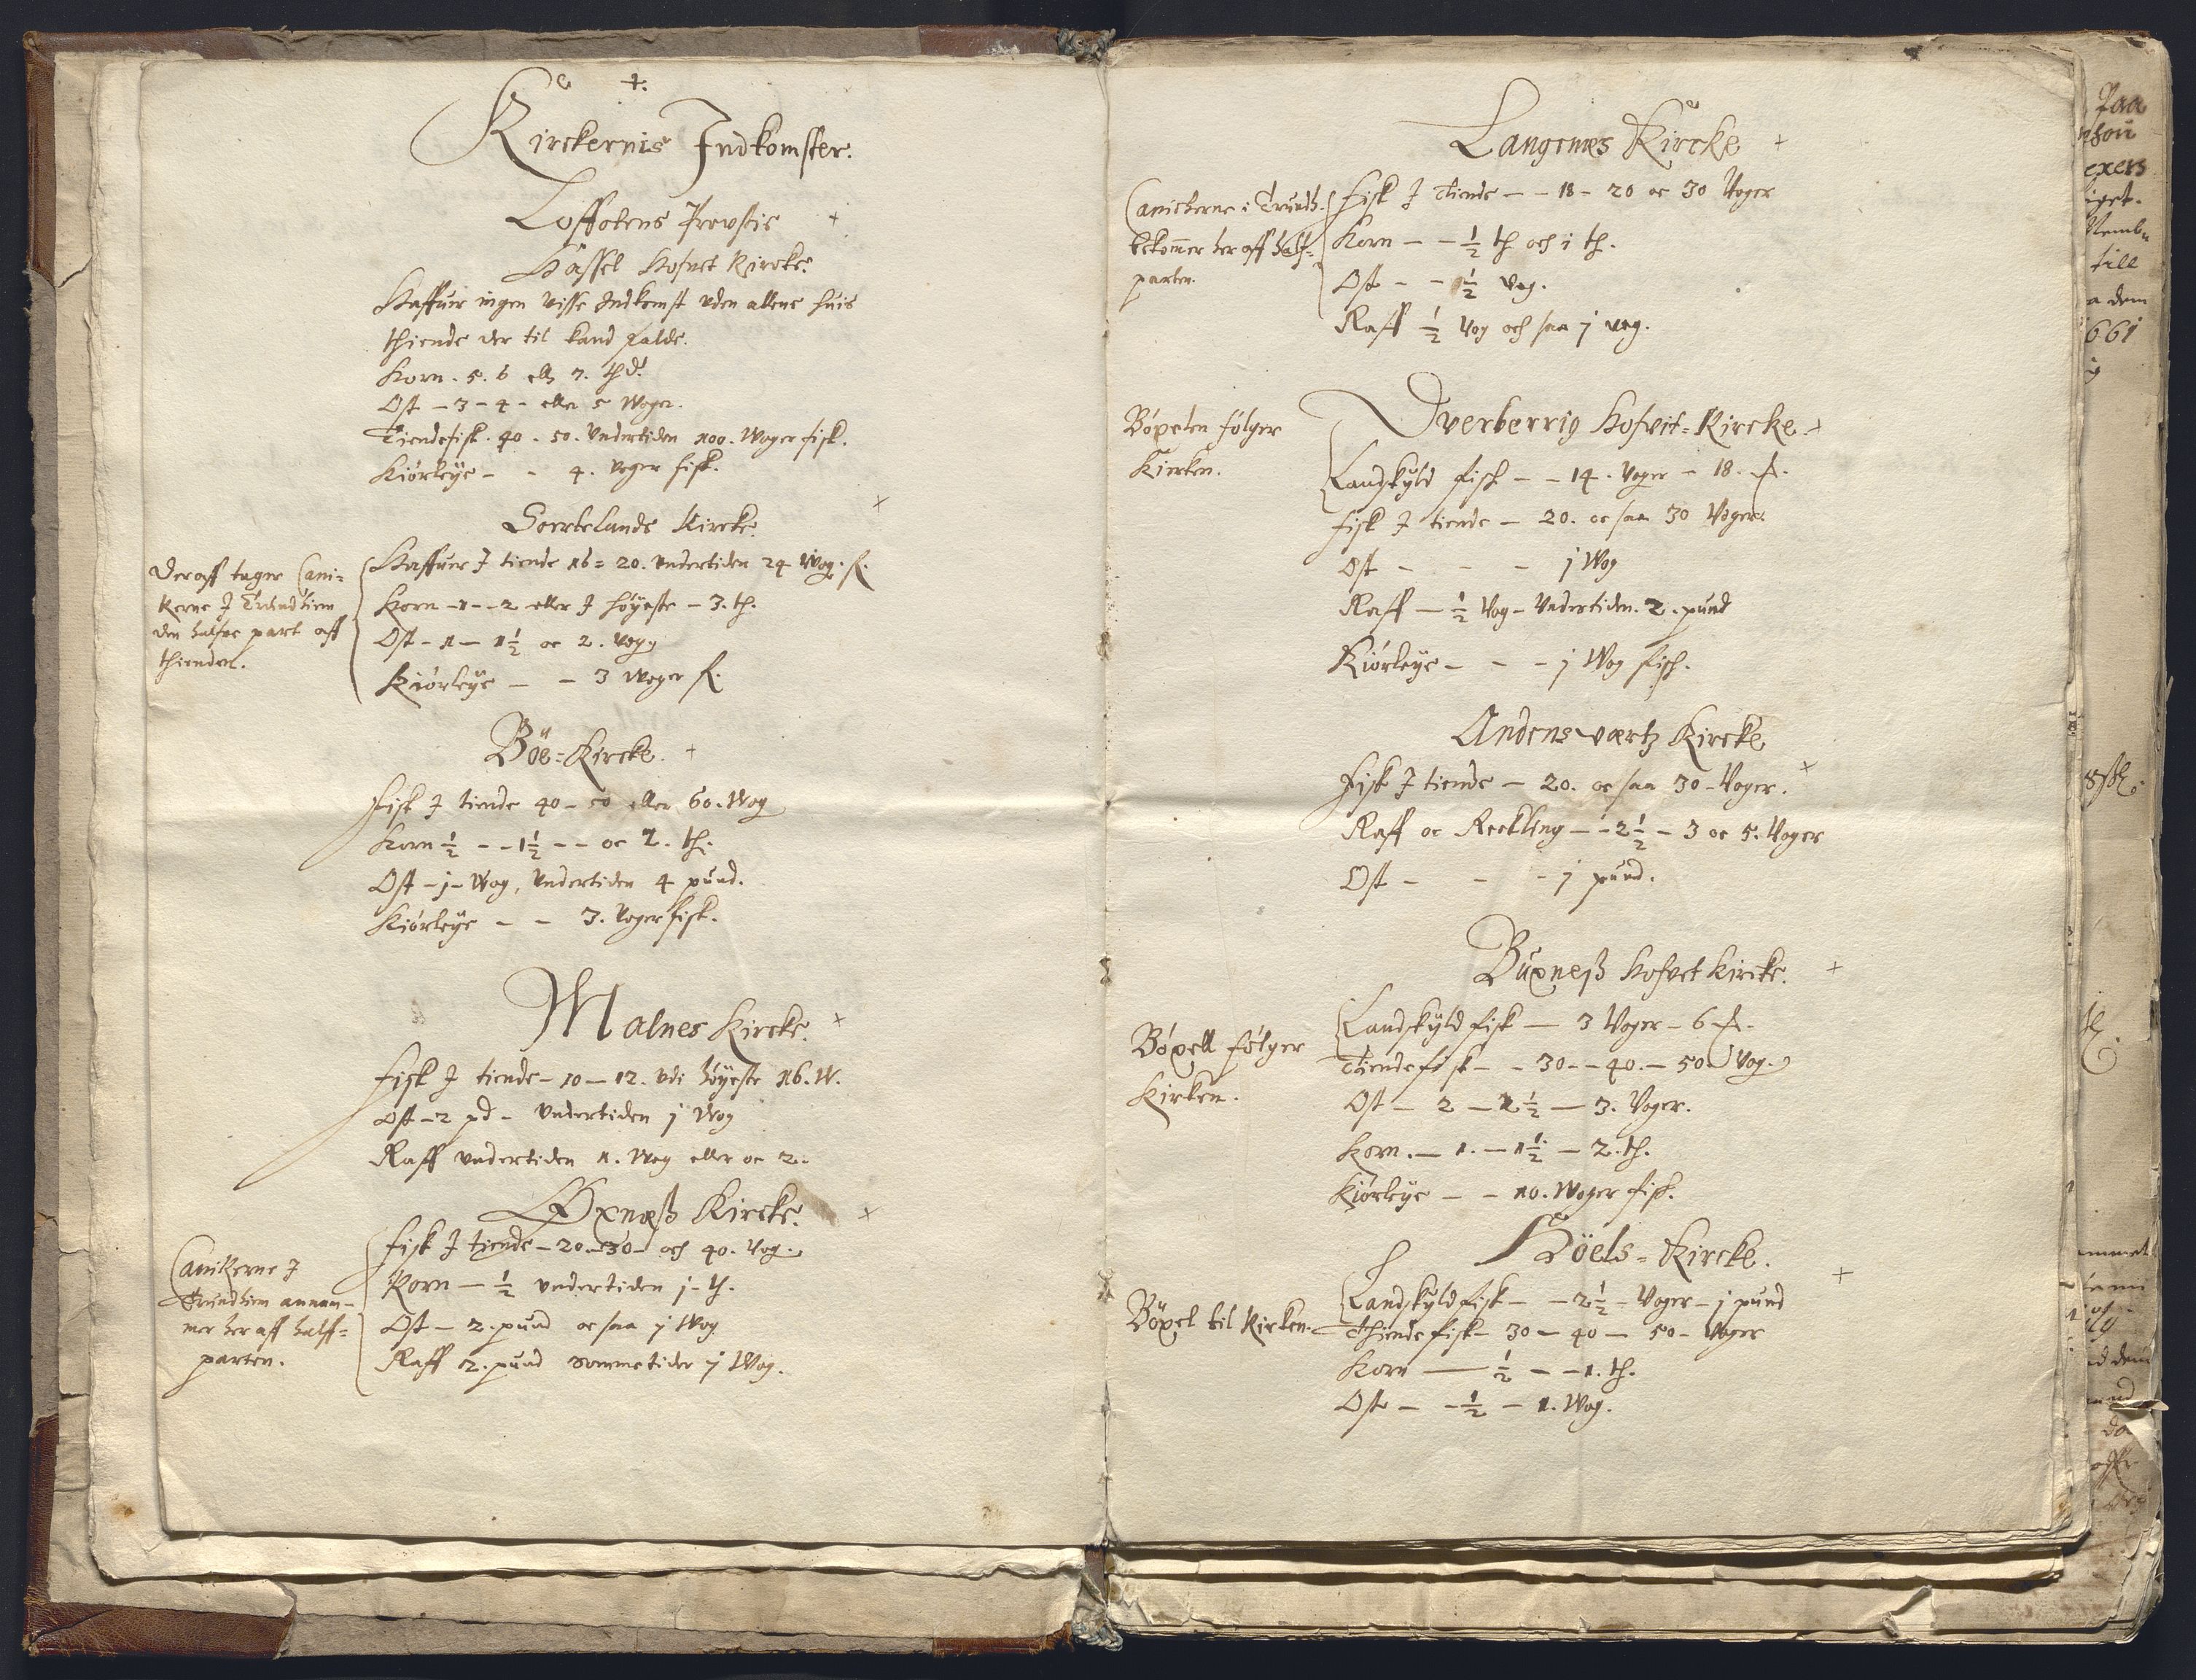 +.
Kirckernis Indkomster.
Loffotens Proustie +
Hassel Hofvet Kircke.
Haffuer ingen Visse Indkomst uden allene huis
thiende der til kand falde.
Korn . 5. 6 ell 7. thd.
Ost - 3 - 4 - eller 5 Woger.
Tiendefisk . 40 . 50 . Undertiden 100. Woger fisk.
Kiörleÿe - - 4. Voger fisk.
+
Soertelands Kircke.
Deraff tager Cani=
kerne I Trundhiem
den halfve part aff
thienden.
Haffuer I tiende 16 = 20. undertiden 24 Wog. f.
Korn - 1 - - 2 eller I höÿeste - 3. th.
Ost - 1 - 1½ oc 2. Vog
Kiörleÿe - - 3 Woger f.
Böe = Kircke. +
Fisk I tiende 40 - 50 eller 60. Wog
Korn ½ - - 1½ - - oc 2. th.
Ost - j - Wog, Undertiden 4 pund.
Kiörleÿe - - 3. Voger fisk.
Malnes Kircke. +
Fisk I tiende - 10 - 12. Udi höÿeste 16. W.
Ost - 2 pd - Undertiden j Wog
Raff undertiden 1. Wog eller oc 2.
Öxnæß Kircke. +
Canikerne I
Trundhiem annam-
mer her aff halff=
parten.
Fisk I tiende - 20 - 30 - och 40. Vog.
Korn - ½ undertiden j - th.
Ost - 2. pund oc saa j Wog
Raff 2. pund sommetider j Wog.
Langenes Kircke +
Canickerne i Trundh.
bekommer her aff half=
parten.
Fisk I Tiende - - 18 - 20 oc 30 Voger
Korn - - ½ th och 1 th.
Ost - - ½ Vog.
Raff ½ Vog och saa j Vog.
Dverberrig Hofvit = Kircke. +
Böxelen fölger
Kirken.
Landskÿld fisk - - 14. Voger - 18.
Fisk I tiende - 20. oc saa 30 Voger.
Ost - - - j Wog
Raff - ½ Vog - Undertiden. 2. pund
Kiörleÿe - - - j Wog fisk.
Andensværtz Kircke
+
Fisk I tiende - 20. oc saa 30 - Voger.
Raff oc Reckling - - 2½ - 3 oc 5. Voger
Ost - - - j pund.
Buxneß Hofvet Kircke. +
Böxell fölger
Kirken.
Landskÿld fisk - 3 Voger - 6
Tiendefisk - - 30 - - 40. - 50 Vog.
Ost - 2 - 2½ - 3. Voger.
Korn. - 1. - 1½ - 2. th.
Kiörleÿe - - 10. Woger fisk.
Höels = Kircke.
+
Böxel til Kirken.
Landskÿldfisk - - 2½ - Voger - j pund
Thiende fisk - 30 - 40 - 50 - Voger
Korn - ½ - - 1. th.
Ost - - ½ - 1. Wog.